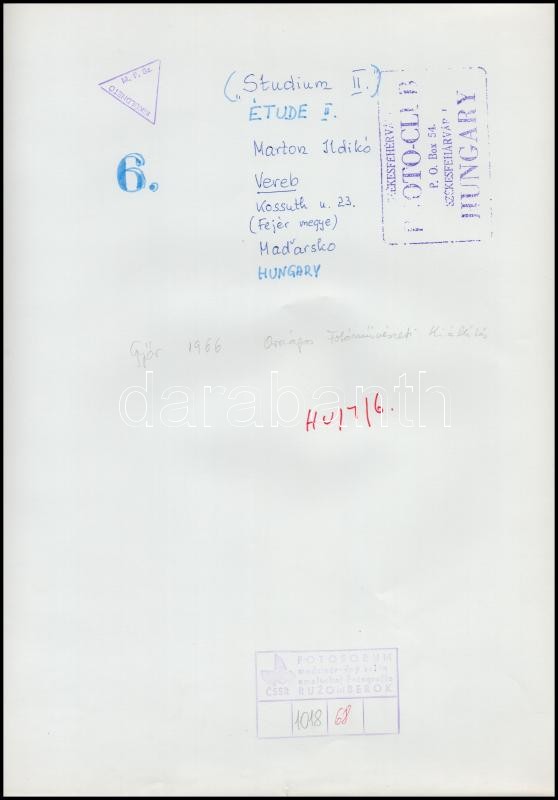 M. F. Sz.
KIKÜLDHETŐ
("Studium II.")
ÉTUDE II.
6.
Marton Ildikó
Vereb
Kossuth u. 23.
(Fejér megye)
Maďarsko
HUNGARY
SZÉKESFEHÉRVÁRI
FOTO-CLUB
P. O. Box 54.
SZÉKESFEHÁRVÁR I
HUNGARY
Győr 1966 Országos Fotóművészeti Kiállítás
darabanth
HU/7/6.
FOTOFORUM
amatérskej fotografie
ČSSR RUŽOMBEROK
1018 68